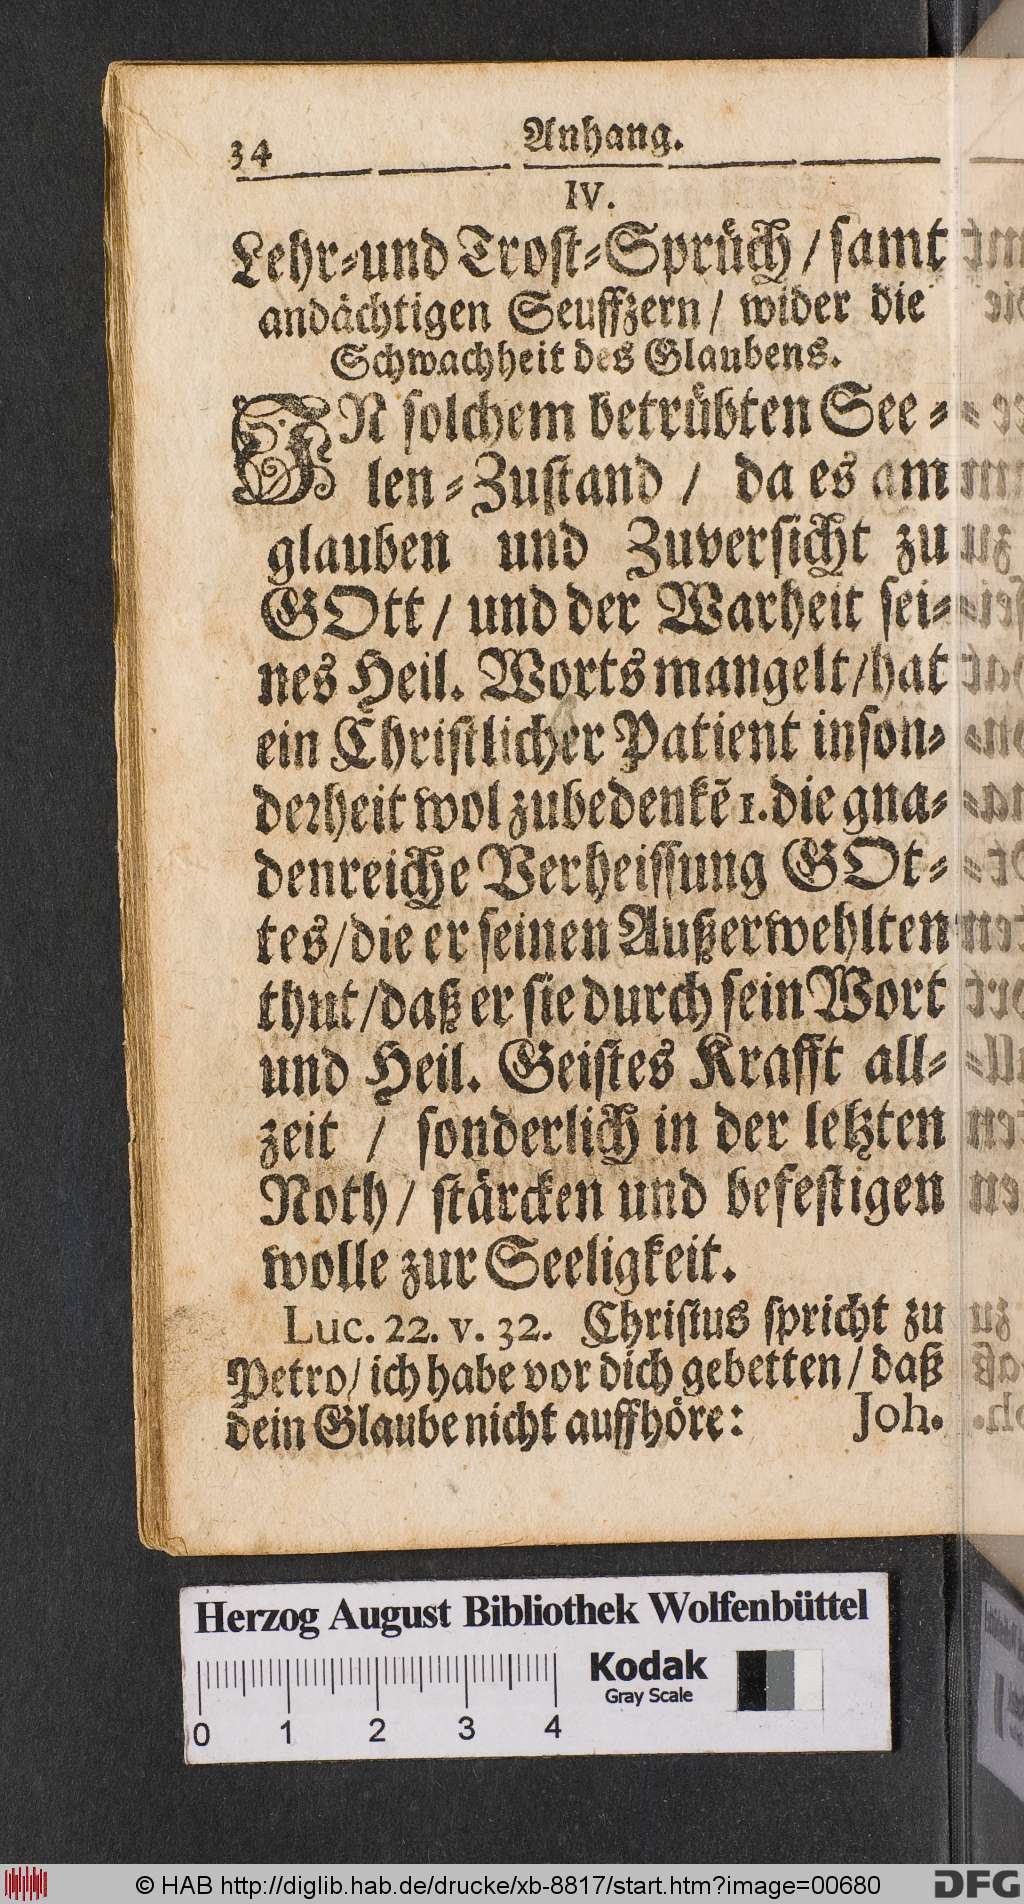 34 Anhang.
IV.
Lehr-und Trost-Sprüch / samt
andächtigen Seuffzern / wider die
Schwachheit des Glaubens.
IN solchem betrübten See-
len-Zustand / da es am
glauben und Zuversicht zu
GOtt / und der Warheit sei-
nes Heil. Worts mangelt / hat
ein Christlicher Patient inson-
derheit wol zubedenkē 1. die gna-
denreiche Verheissung GOt-
tes / die er seinen Außerwehlten
thut / daß er sie durch sein Wort
und Heil. Geistes Krafft all-
zeit / sonderlich in der letzten
Noth / stärcken und befestigen
wolle zur Seeligkeit.
Luc. 22. v. 32. Christus spricht zu
Petro / ich habe vor dich gebetten / daß
dein Glaube nicht auffhöre: Joh.
Herzog August Bibliothek Wolfenbüttel
Kodak
Gray Scale
0 1 2 3 4
© HAB http://diglib.hab.de/drucke/xb-8817/start.htm?image=00680
DFG